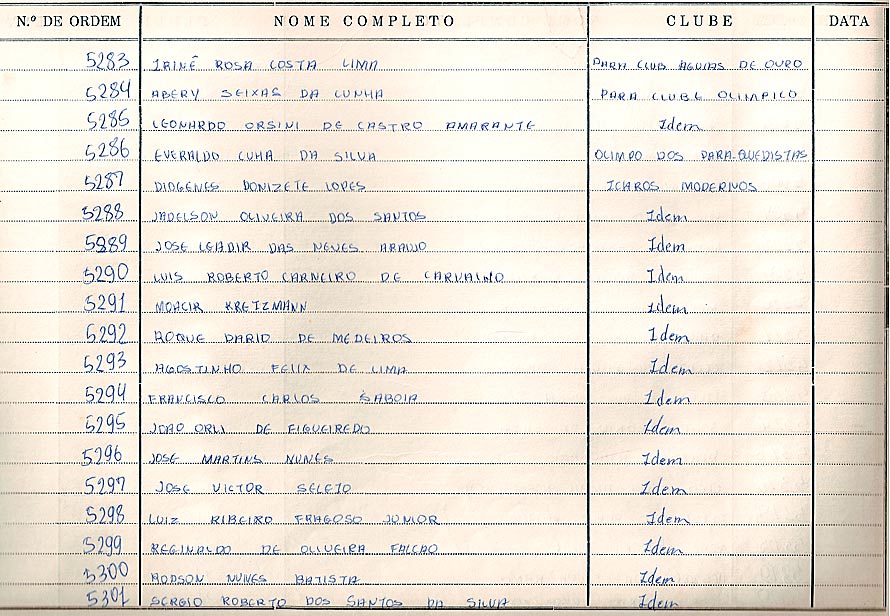 N.º DE ORDEM NOME COMPLETO CLUBE DATA
5283 IRINÊ ROSA COSTA LIMA PARA CLUB AGUIAS DE OURO
5284 ABERY SEIXAS DA CUNHA PARA CLUBE OLIMPICO
5285 LEONARDO ORSINI DE CASTRO AMARANTE Idem
5286 EVERALDO CUHA DA SILVA OLIMPO DOS PARA-QUEDISTAS
5287 DIOGENES DONIZETE LOPES ICAROS MODERNOS
5288 JADELSON OLIVEIRA DOS SANTOS Idem
5289 JOSE LEADIR DAS NEVES ARAUJO Idem
5290 LUIS ROBERTO CARNEIRO DE CARVALHO Idem
5291 MOACIR KRETZMANN Idem
5292 ROQUE DARIO DE MEDEIROS Idem
5293 AGOSTINHO FELIX DE LIMA Idem
5294 FRANCISCO CARLOS SABOIA Idem
5295 JOAO ORLI DE FIGUEIREDO Idem
5296 JOSE MARTINS NUNES Idem
5297 JOSE VICTOR SELEJO Idem
5298 LUIZ RIBEIRO FRAGOSO JUNIOR Idem
5299 REGINALDO DE OLIVEIRA FALCAO Idem
5300 RODSON NUNES BATISTA Idem
5301 SERGIO ROBERTO DOS SANTOS DA SILVA Idem